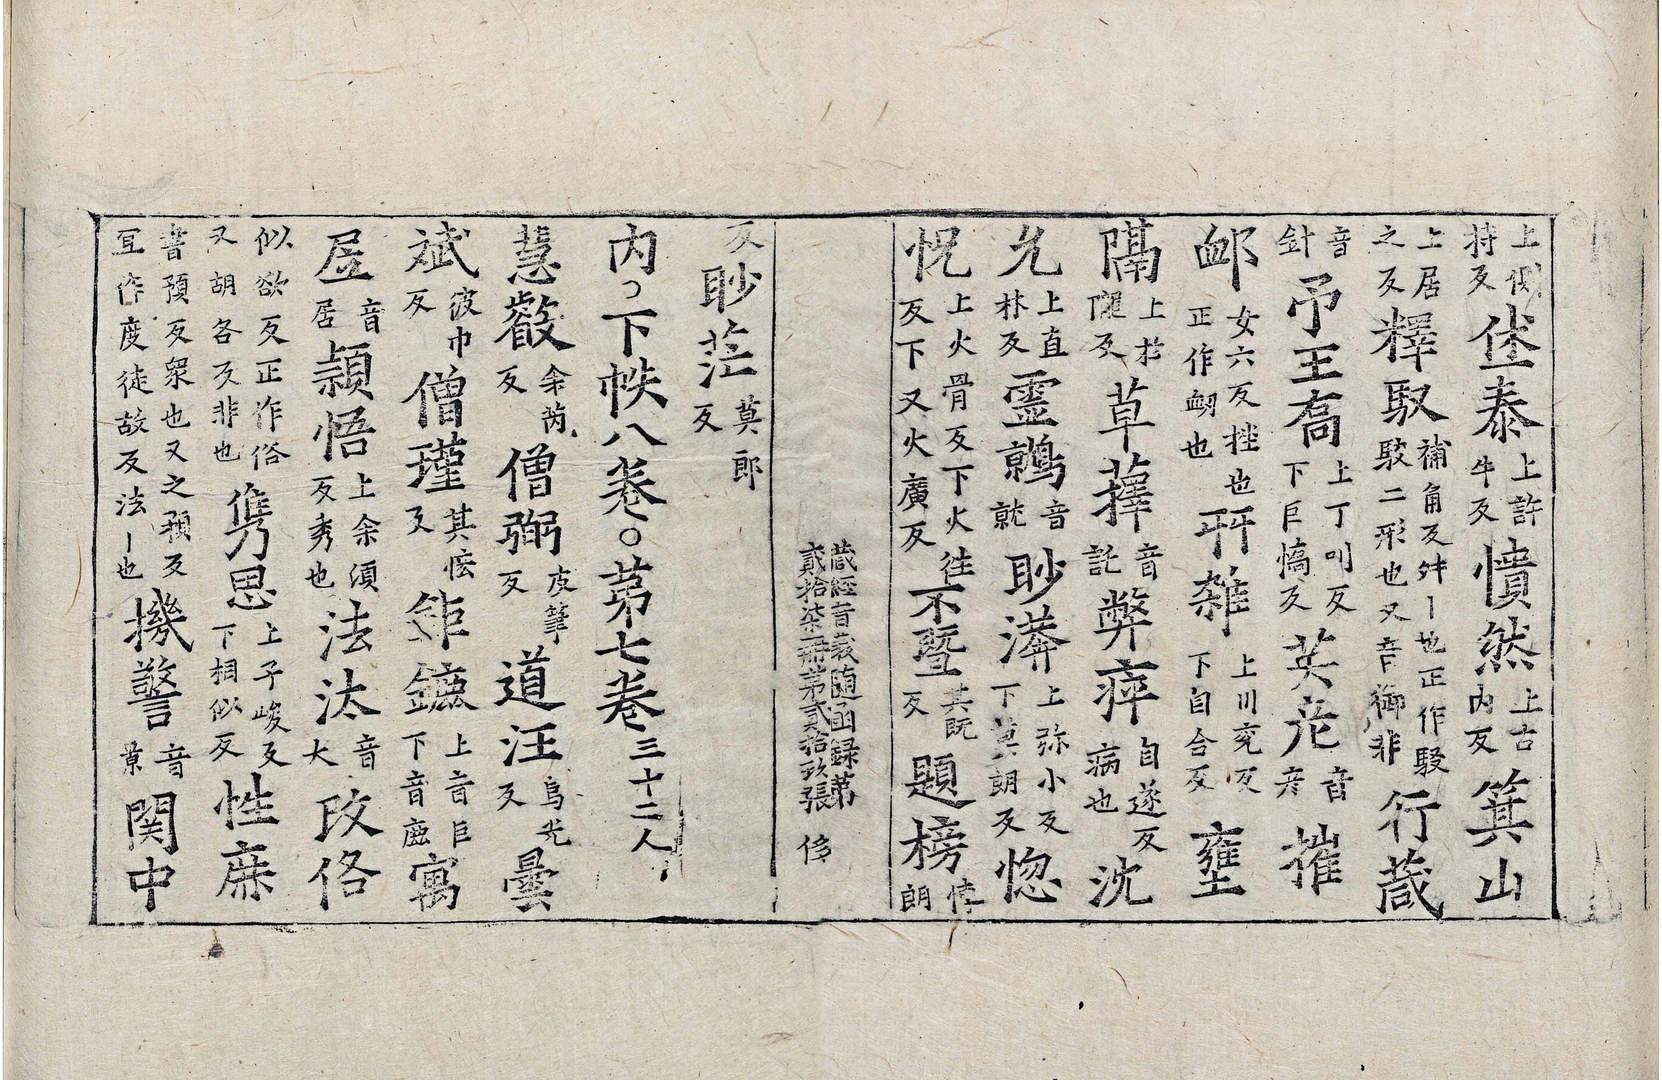 上側持反㘸泰上許牛反憒然上古內反箕山
上居之反釋馭補角反舛丨也正作駁駮二形也又音御非行葴
音針𢎣王矞上丁叫反下巨憍反英彦音彦摧
䘐女六反挫也正作衂也䎡雜上川兖反下自合反壅
隔上扵隴反草蘀音託弊瘁自遂反病也沈
允上直林反靈鷲音就眇漭上弥小反下莫朗反惚
怳上火骨反下火往反下又火廣反不暨其既反題榜愽朗
藏經音義随函録第貳拾柒冊第貳拾玖張 侈
反眇茫莫郎反
內丶下帙八卷〇苐七卷三十二人
慧嚴余芮反僧弼皮筆反道汪烏光反曇
斌彼巾反僧瑾其恡反鉅鏕上音巨下音鹿寓
居音居頴悟上余湏反秀也法汰音大攺俗
似欲反正作俗又胡各反非也雋思上子峻反下相似反性庶
書預反衆也又之預反冝作度徒故反法丨也機警音景関中